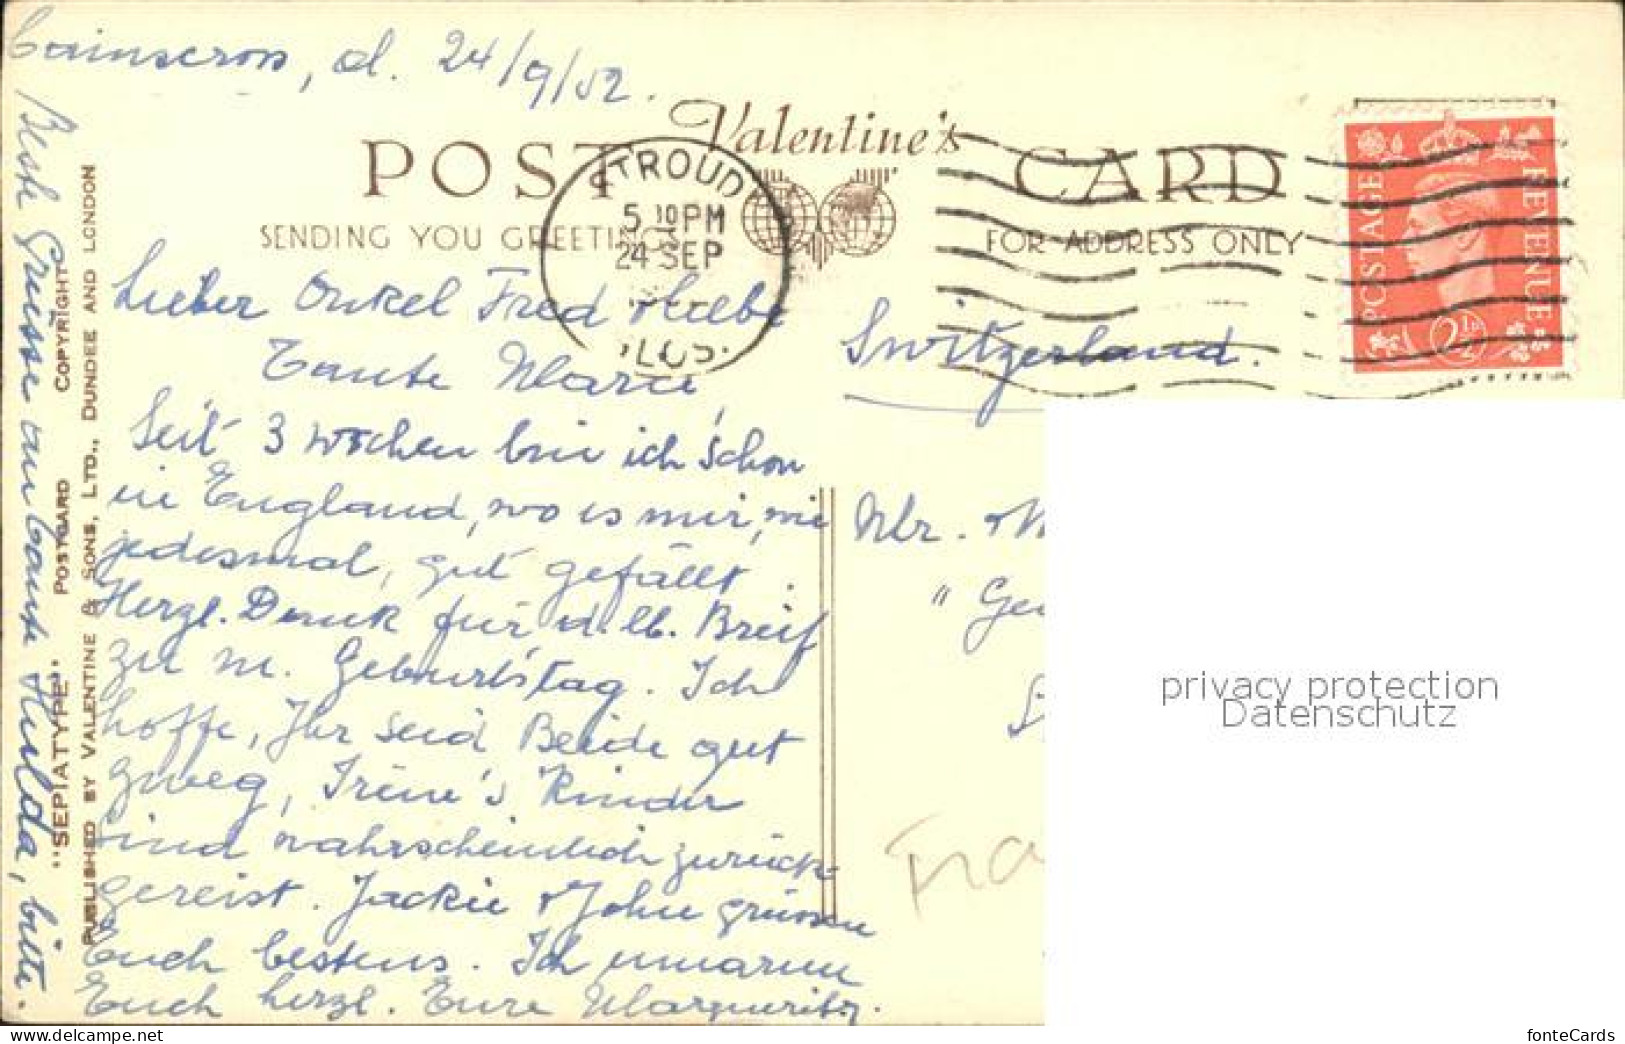 Cainscross, d. 24/9/52.
Valentine's
POST CARD
SENDING YOU GREETINGS
FOR ADDRESS ONLY
STROUD
5 30PM
24 SEP
GLOS.
POSTAGE REVENUE
2½D
Lieber Onkel Fred & liebe
Tante Marie,
Seit 3 Wochen bin ich schon
in England, wo es mir, wie
jedesmal, gut gefällt.
Herzl. Dank für d. lb. Brief
zu m. Geburtstag. Ich
hoffe, Ihr seid Beide gut
zweg, Irène's Kinder
sind wahrscheinlich zurück
gereist. Jackie & John grüssen
Euch bestens. Ich umarme
Euch herzl. Eure Marguerite.
Beste Grüsse an Tante Hulda, bitte.
"SEPIATYPE" POSTCARD COPYRIGHT
PUBLISHED BY VALENTINE & SONS, LTD., DUNDEE AND LONDON
Switzerland.
Mr. &
privacy protection
Datenschutz
fonteCards